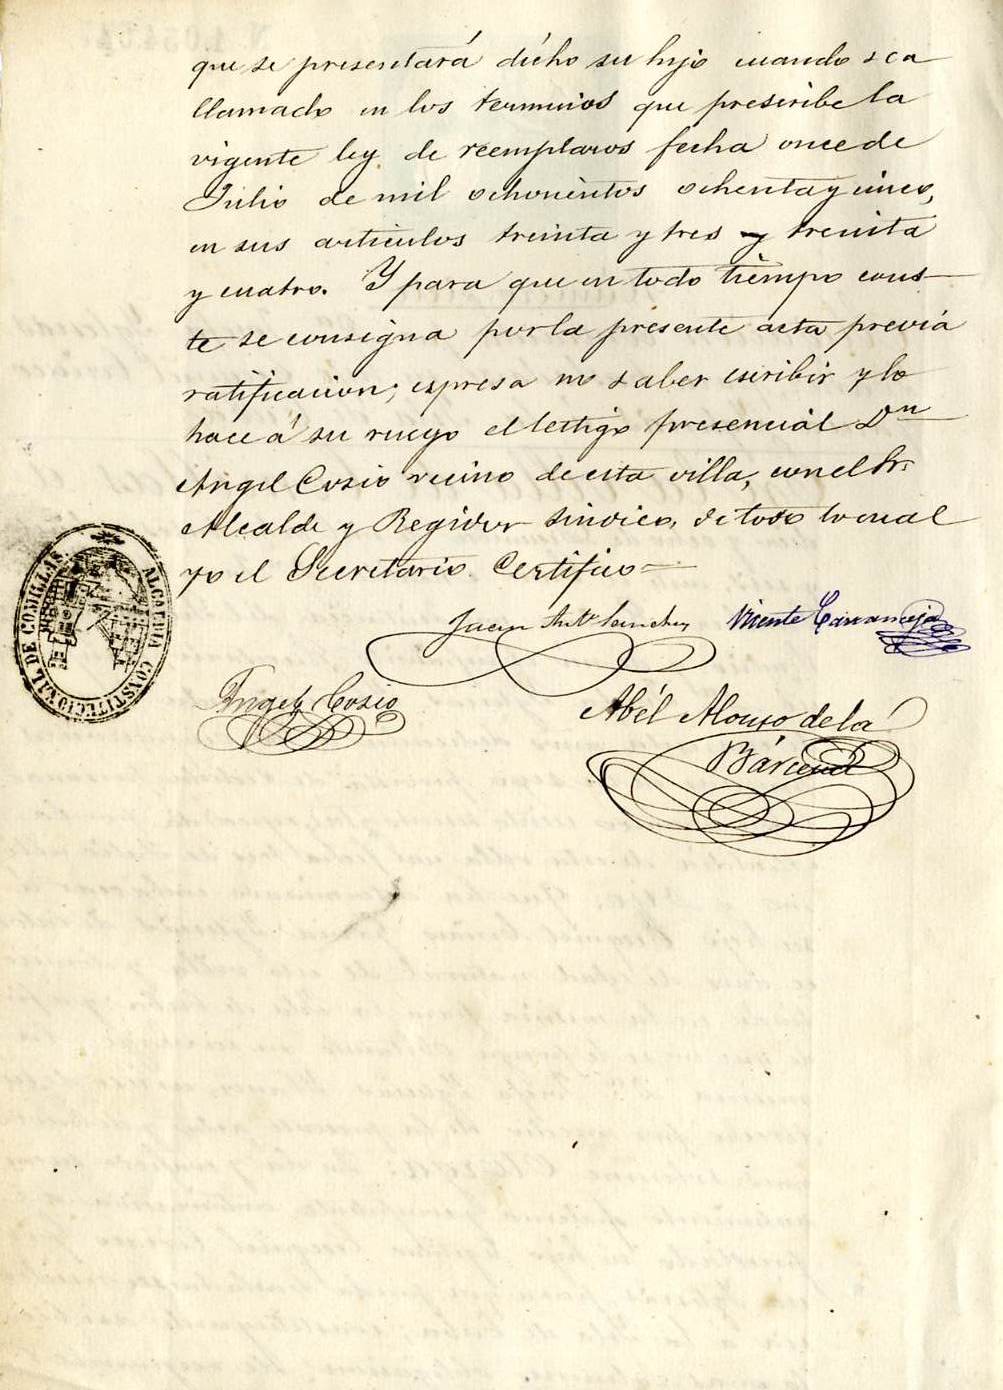 que se presentará dicho su hijo cuando sea
llamado en los terminos que prescribe la
vigente ley de reemplazos fecha once de
Julio de mil ochocientos ochenta y cinco,
en sus articulos treinta y tres y treinta
y cuatro. Y para que en todo tiempo cons-
te se consigna por la presente acta previa
ratificacion; espresa no saber escribir y lo
hace á su ruego el testigo presencial Dn
Angel Cosio vecino de esta villa, con el Sr.
Alcalde y Regidor Sindico, de todo lo cual
yo el Secretario Certifico=
Juan Anto Sanchez Vicente Carranceja
Angel Cosio
Abél Alonso de la
Bárcena
ALCALDIA CONSTITUCIONAL DE COMILLAS